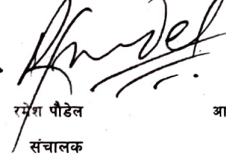 रमेश पौडेल आ
संचालक